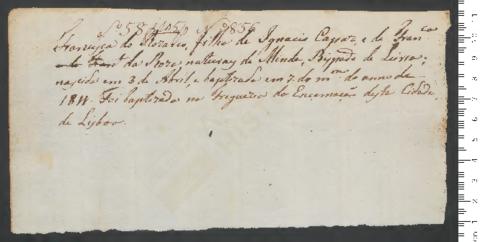 Francisca do Rozario, filha de Ignacio Capaz, e de Fran.ca
da Roza, naturaes de Minde, Bispado de Leiria;
nascida em 3 de Abril, e baptizada em 7 do m.mo do anno de
1811. Foi baptizada na freguezia da Encarnação desta Cidade
de Lisboa.